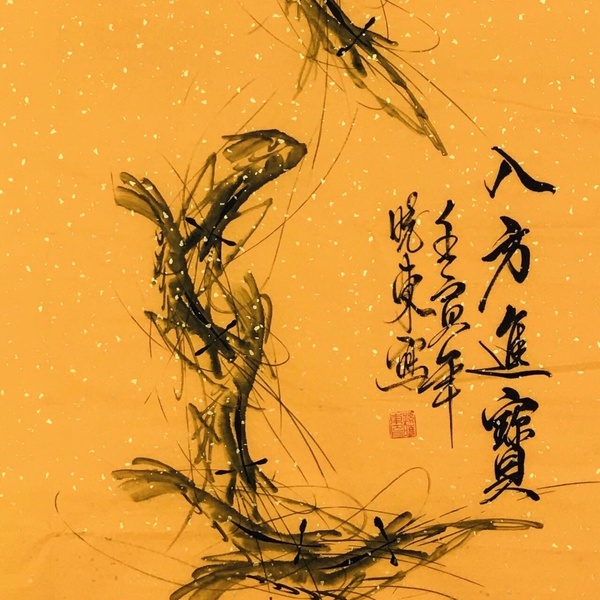 八方進寶
壬寅年
曉東寫